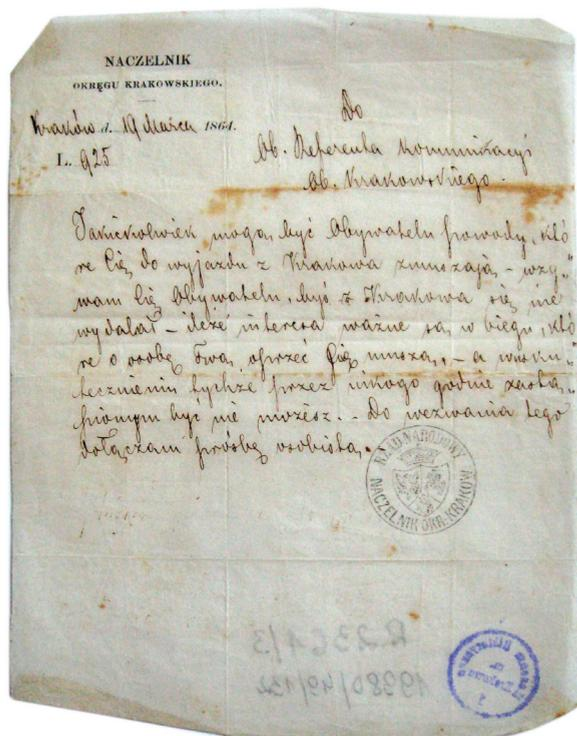 NACZELNIK
OKRĘGU KRAKOWSKIEGO.
Kraków d. 19 Marca 1864.
L. 925
Do
Ob. Referenta Kommunikacyi
Ob. Krakowskiego.
Jakiekolwiek mogą być Obywatelu powody, któ
re Cię do wyjazdu z Krakowa zmuszają – wzy„
wam Cię Obywatelu, byś z Krakowa się nie
wydalał – ileże interesa ważne są w biegu, któ
re o osobę Twą oprzeć się muszą, – a w usku„
tecznieniu tychże przez nikogo godnie zastą„
pionym być nie możesz. – Do wezwania tego
dołączam prośbę osobistą. –
RZĄD NARODOWY
NACZELNIK OKR. KRAKOW
R.2361/3
19380/49/132